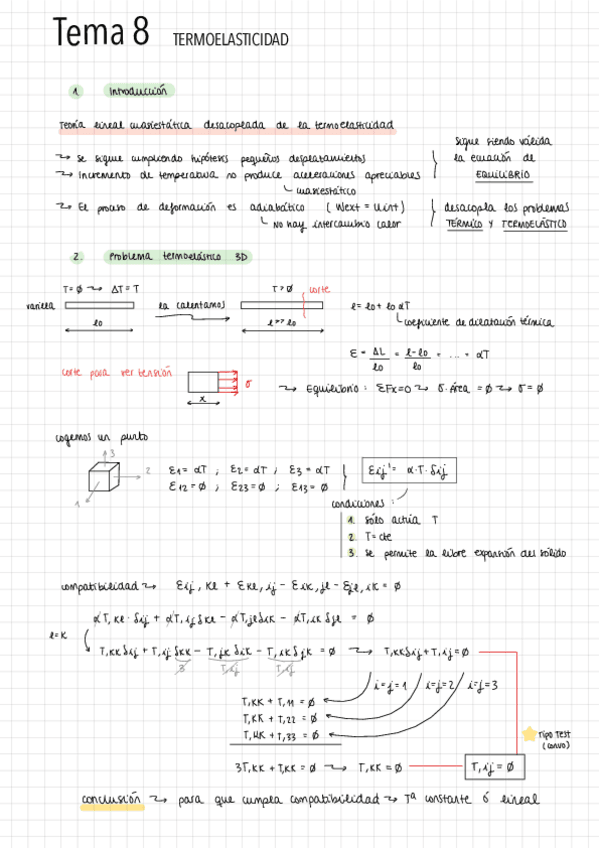 Tema 8 TERMOELASTICIDAD
1 Introducción
Teoría lineal cuasiestática desacoplada de la termoelasticidad
↝ Se sigue cumpliendo hipótesis pequeños desplazamientos
↝ Incremento de temperatura no produce aceleraciones apreciables
cuasiestático
Sigue siendo válida
la ecuación de
EQUILIBRIO
↝ El proceso de deformación es adiabático (Wext = Uint)
No hay intercambio calor
desacopla los problemas
TÉRMICO y TERMOELÁSTICO
2. Problema termoelástico 3D
T=Ø ↝ ΔT = T
varilla
lo
la calentamos
T>Ø corte
l>> lo
l = lo + lo αT
coeficiente de dilatación térmica
ε = ΔL/lo = l-lo/lo = ... = αT
corte para ver tensión
σ
x
↝ Equilibrio: ΣFx=0 ↝ σ·Área = Ø ↝ σ = Ø
cogemos un punto
3
2
1
ε1 = αT ; ε2 = αT ; ε3 = αT
ε12 = Ø ; ε23 = Ø ; ε13 = Ø
εij' = α·T·δij
condiciones:
1. Sólo actúa T
2. T = cte
3. Se permite la libre expansión del sólido
compatibilidad ↝ εij,kl + εkl,ij - εik,jl - εjl,ik = Ø
αT,kl·δij + αT,ij δkl - αT,jl δik - αT,ik δjl = Ø
l=k
T,kk δij + T,ij δkk - T,jk δik - T,ik δjk = Ø ↝ T,kk δij + T,ij = Ø
3 T,ij T,ij
i=j=1 i=j=2 i=j=3
T,kk + T,11 = Ø
T,kk + T,22 = Ø
T,kk + T,33 = Ø
Tipo Test
(convo)
3T,kk + T,kk = Ø → T,kk = Ø T,ij = Ø
conclusión ↝ para que cumpla compatibilidad ↝ Tª constante ó lineal